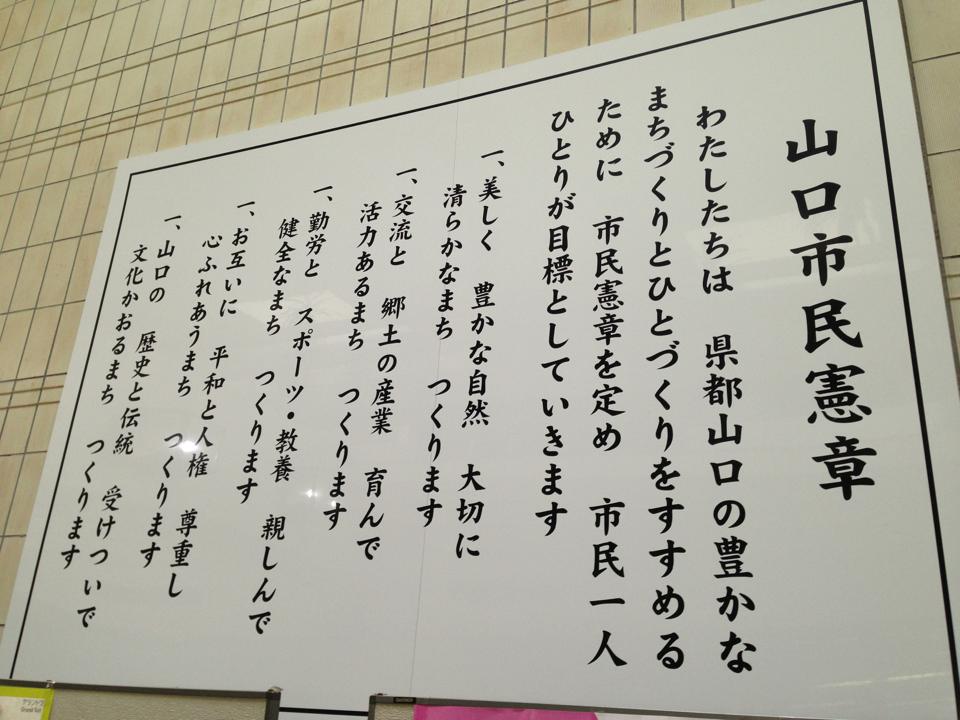 山口市民憲章
わたしたちは 県都山口の豊かな
まちづくりとひとづくりをすすめる
ために 市民憲章を定め 市民一人
ひとりが目標としていきます
一、美しく 豊かな自然 大切に
清らかなまち つくります
一、交流と 郷土の産業 育んで
活力あるまち つくります
一、勤労と スポーツ・教養 親しんで
健全なまち つくります
一、お互いに 平和と人権 尊重し
心ふれあうまち つくります
一、山口の 歴史と伝統 受けついで
文化かおるまち つくります